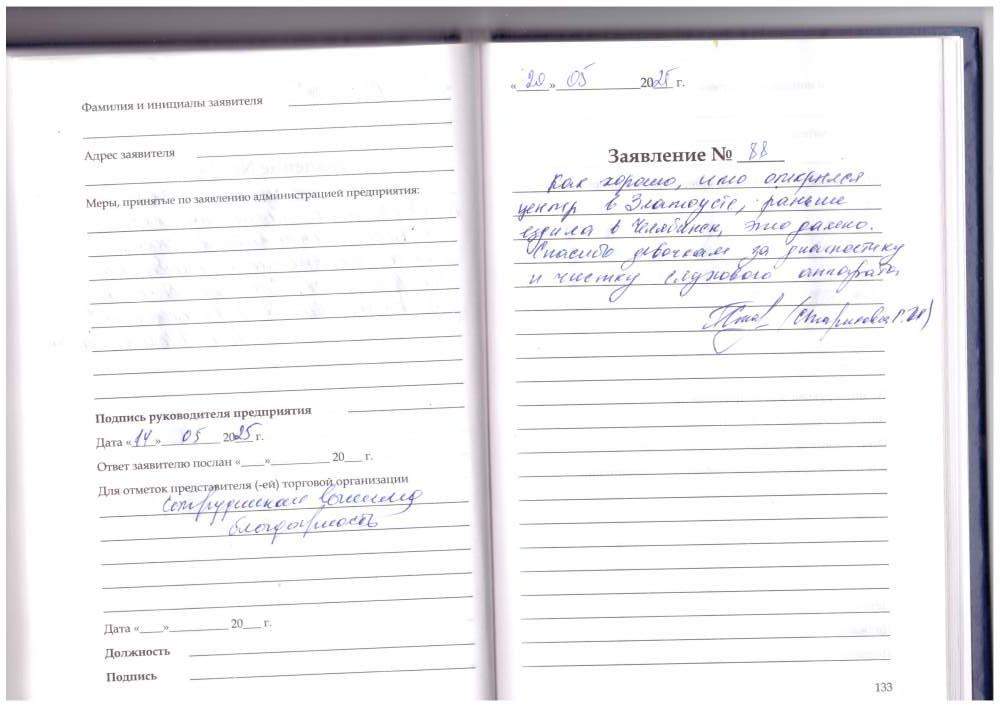 Фамилия и инициалы заявителя
Адрес заявителя
Меры, принятые по заявлению администрацией предприятия:
Подпись руководителя предприятия
Дата «14» 05 2025 г.
Ответ заявителю послан «___»_________ 20___ г.
Для отметок представителя (-ей) торговой организации
Сотрудникам
благодарность
Дата «___»_________ 20___ г.
Должность
Подпись
«20» 05 2025 г.
Заявление № 88
Как хорошо, что открылся
центр в Златоусте, раньше
ездила в Челябинск, это далеко.
Спасибо девочкам за диагностику
и чистку слухового аппарата
133